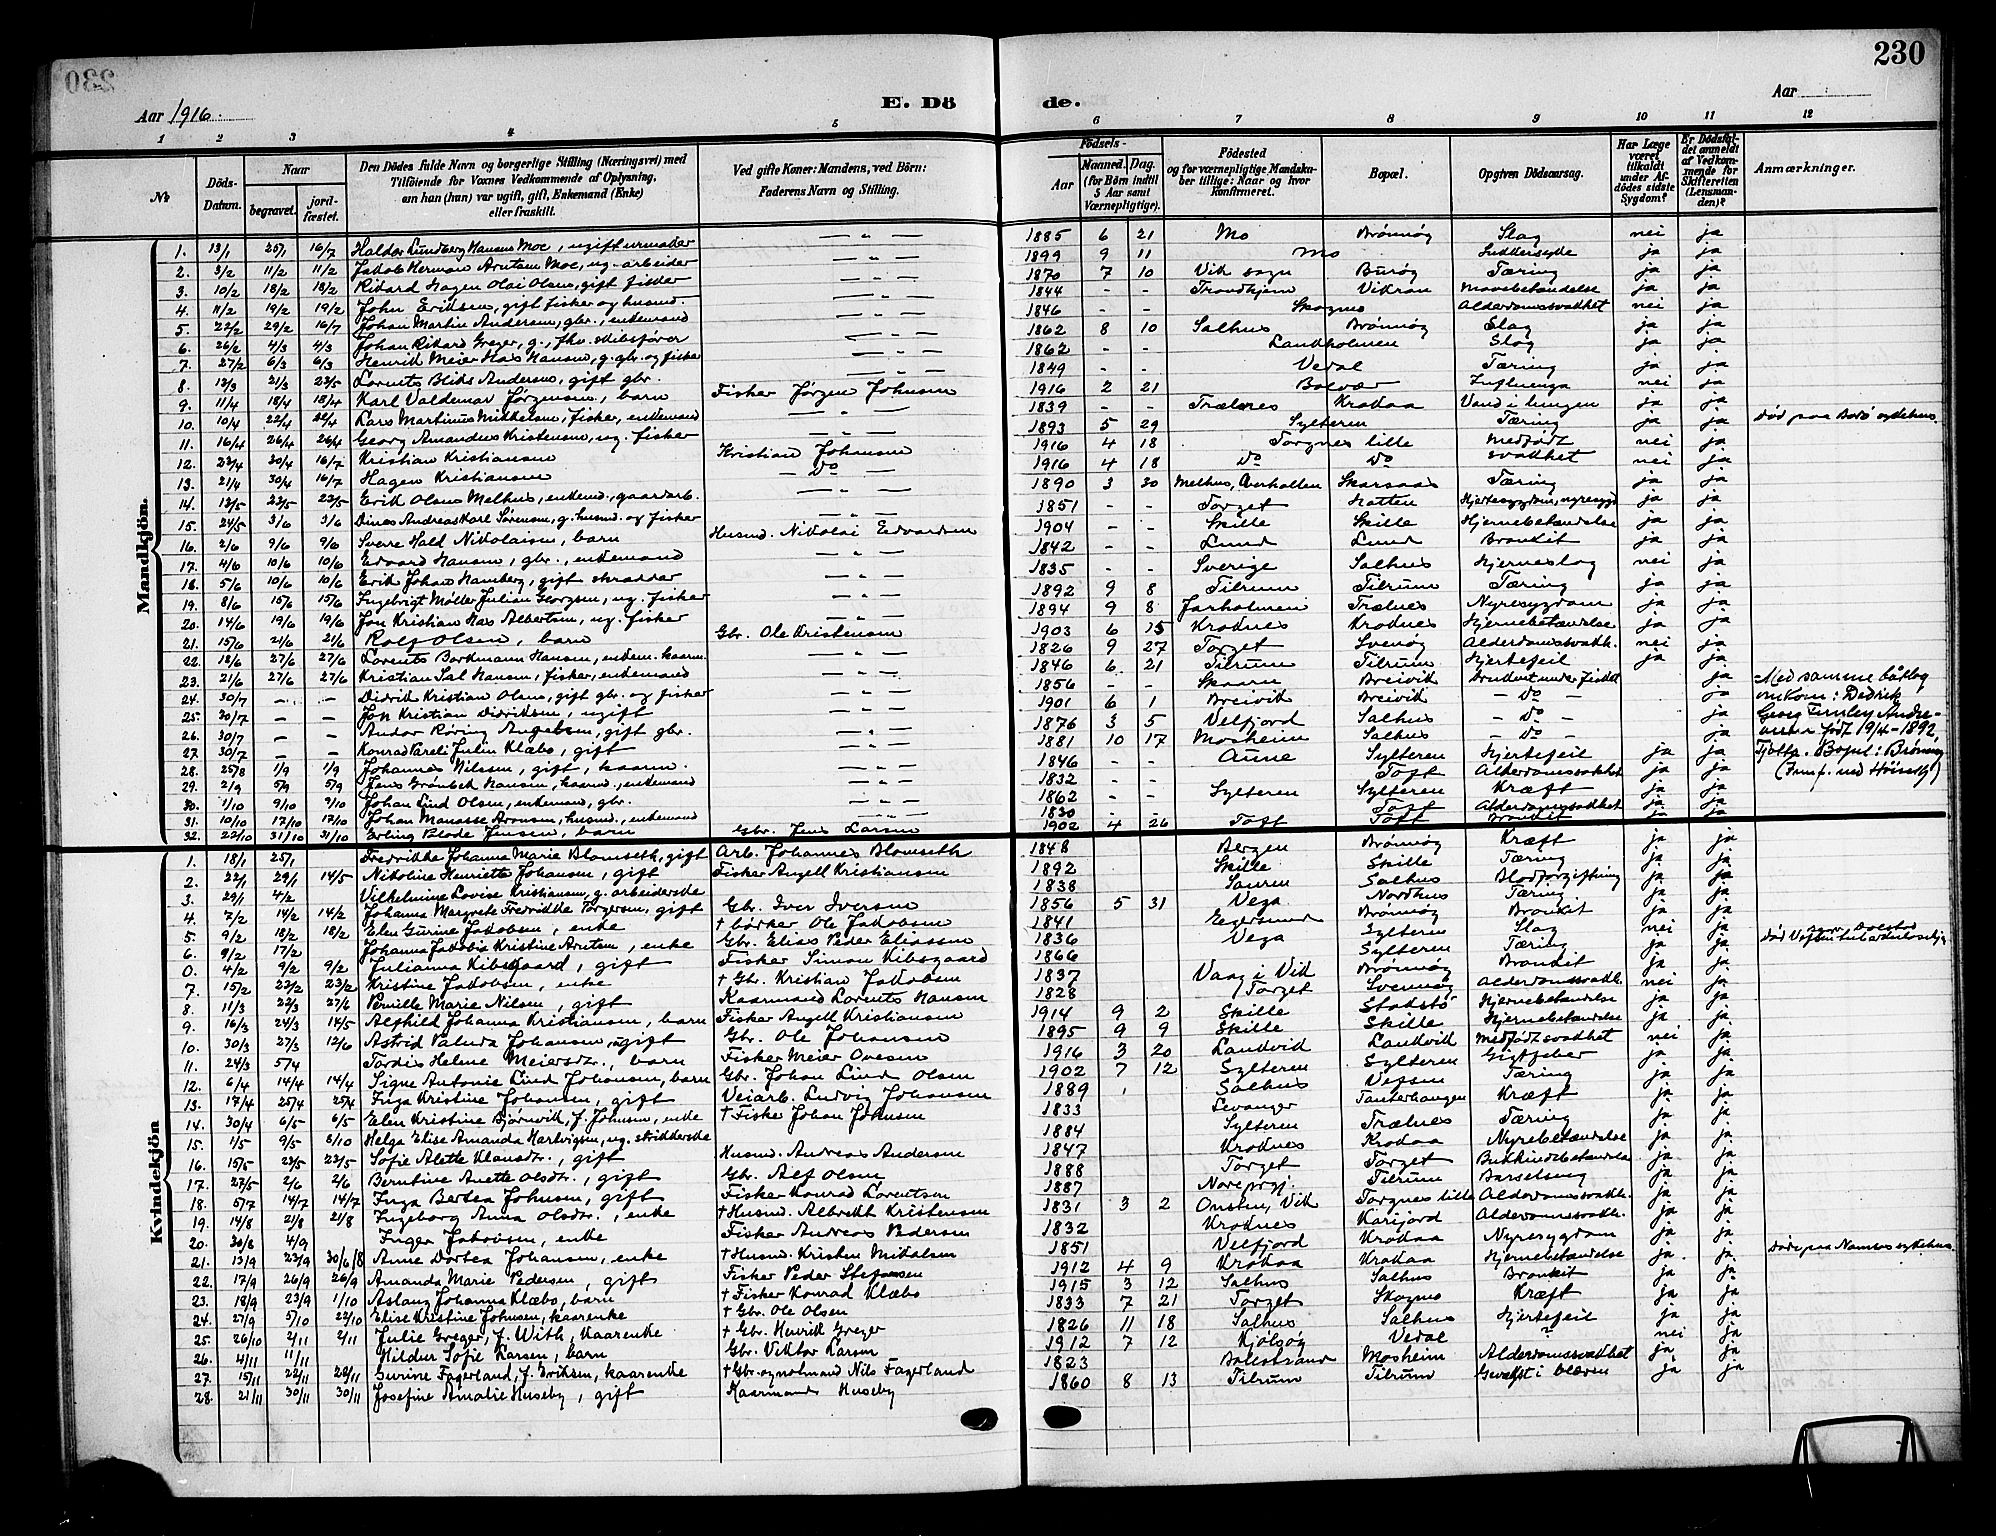 230
Aar 1916.
E. Dö de.
Aar
1 2 3 4 5 6 7 8 9 10 11 12
№
Döds-Datum.
Naar
begravet.
jord-fæstet.
Den Dödes fulde Navn og borgerlige Stilling (Næringsvei) med
Tilföiende for Voxnes Vedkommende af Oplysning,
om han (hun) var ugift, gift, Enkemand (Enke)
eller fraskilt.
Ved gifte Koner: Mandens, ved Börn:
Faderens Navn og Stilling.
Födsels-
Aar
Maaned. Dag.
(for Börn indtil
5 Aar samt
Værnepligtige).
Födested
og for værnepligtige Mandska-
ber tillige: Naar og hvor
konfirmeret.
Bopæl.
Opgiven Dödsaarsag.
Har Læge
været
tilkaldt
under Af-
dödes sidste
Sygdom?
Er Dödsfal-
det anmeldt
af Vedkom-
mende for
Skifteretten
(Lensman-
den)?
Anmærkninger.
Mandkjön.
1. 13/1 25/1 16/7 Haldor Lundberg Hansen Moe, ugift urmaker — " — 1885 6 21 Mo Brønnøy Slag nei ja
2. 3/2 11/2 11/2 Jakob Herman Arntsen Moe, ug. arbeider — " — 1899 9 11 Mo Sukkersyke ja ja
3. 10/2 18/2 18/2 Rikard Hagen Olai Olsen, gift fisker — " — 1870 7 10 Vik sogn Burøy Tæring ja ja
4. 11/2 19/2 19/2 John Eriksen, gift fisker og husmd. — " — 1844 - - Trondhjem Vikran Mavebetændelse ja ja
5. 22/2 29/2 16/7 Johan Martin Andersen, gbr., enkemand — " — 1846 - - Skognes Alderdomssvakhet nei ja
6. 26/2 4/3 4/3 Johan Rikard Greger, g., fhv. skibsfører — " — 1862 8 10 Salhus Brønnøy Slag ja ja
7. 27/2 6/3 6/3 Henrik Meier Hax Hansen, g. gbr. og fisker — " — 1862 - - Landholmen Slag ja ja
8. 12/3 21/3 23/5 Lornts Bliks Andersen, gift gbr. — " — 1849 - - Vedal Tæring ja ja
9. 11/4 18/4 18/4 Karl Valdemar Jørgensen, barn Fisker Jørgen Johnsen 1916 2 21 Bolvær Influenza nei ja
10. 10/4 22/4 22/4 Lars Martinus Mikkelsen, fisker, enkemand — " — 1839 - - Trælnes Krokaa Vand i lungen ja ja
11. 16/4 26/4 26/4 Georg Amandus Kristensen, ug. fisker — " — 1893 5 29 Sylteren Tæring ja ja Død paa Bodø sykehus.
12. 23/4 30/4 16/7 Kristian Kristiansen Kristian Johansen 1916 4 18 Torgnes lille Medfødt nei ja
13. 21/4 30/4 16/7 Hagen Kristiansen — Do — 1916 4 18 Do Do svakhet nei ja
14. 13/5 23/5 23/5 Erik Olsen Melhus, enkemd., gaardarb. — " — 1890 3 30 Melhus, Overhallen Skarsaas Tæring ja ja
15. 24/5 3/6 3/6 Dines Andreas Karl Sørensen, g. husmd. og fisker — " — 1851 - - Torget Hatten Hjertesygdom, nyresygd. ja ja
16. 2/6 9/6 9/6 Sverre Hald Nikolaisen, barn Husmd. Nikolai Edvardsen 1904 - - Skille Skille Hjernebetændelse ja ja
17. 4/6 10/6 10/6 Edvard Hansen, gbr., enkemand — " — 1842 - - Lund Lund Bronkit ja ja
18. 5/6 10/6 10/6 Erik Johan Hamberg, gift skrædder — " — 1835 - - Sverige Salhus Hjerneslag nei ja
19. 8/6 15/6 15/6 Ingebrigt Møller Julian Georgsen, ug. fisker — " — 1892 9 8 Tilrum Tilrum Tæring ja ja
20. 14/6 19/6 19/6 Jon Kristian Hax Albertsen, ug. fisker — " — 1894 9 8 Jarholmen Trælnes Nyresygdom ja ja
21. 15/6 21/6 21/6 Rolf Olsen, barn Gbr. Ole Kristensen 1903 6 15 Kroknes Kroknes Hjernebetændelse ja ja
22. 18/6 27/6 27/6 Lorents Borkmann Hansen, enkem. kaarm. — " — 1826 9 27 Torget Svenøy Alderdomssvakh. nei ja
23. 21/6 27/6 27/6 Kristian Sal Hansen, fisker, enkemand — " — 1846 6 21 Tilrum Tilrum Hjertefeil ja ja
24. 30/7 - - Didrik Kristian Olsen, gift gbr. og fisker — " — 1856 - - Skaarn Breivik Druknet under fisket ja
25. 30/7 - - Jon Kristian Didriksen, ugift — " — 1901 6 1 Breivik Breivik — Do — ja
26. 30/7 - - Andor Røring Angelsen, gift gbr. — " — 1876 3 5 Velfjord Salhus — Do — ja
27. 30/7 - - Konrad Pareli Julin Klæbo, gift — " — 1881 10 17 Mosheim Salhus — Do — ja
Med samme båtlag
omkom: Dedrik
Georg Fernley Andre-
assen født 19/4-1892,
Tjøtta. Bopæl: Brønnøy
28. 25/8 1/9 1/9 Johannes Nilssen, gift, kaarm. — " — 1846 - - Aune Sylteren Hjertefeil ja ja
29. 2/9 5/9 5/9 Jens Grønbek Hansen, kaarmd., enkemand — " — 1832 - - Toft Alderdomssvakhet ja ja
30. 1/10 9/10 9/10 Johan Lind Olsen, enkemand, gbr. — " — 1862 - - Sylteren Sylteren Kræft ja ja
31. 10/10 17/10 17/10 Johan Manasse Aronsen, husmd., enkemand — " — 1830 - - Toft Alderdomssvakhet ja ja
32. 22/10 31/10 31/10 Erling Blode Jensen, barn Gbr. Jens Larsen 1902 4 26 Toft Toft Bronkit ja ja
Kvindekjön
1. 18/1 25/1 Fredrikke Johanna Marie Blomseth, gift Arb. Johannes Blomseth 1848 Bergen Brønnøy Kræft ja ja
2. 22/1 29/1 14/5 Nikoline Henriette Johansen, gift Fisker Angell Kristiansen 1892 Skille Skille Tæring ja ja
3. 29/1 4/2 Vilhelmine Lovise Kristiansen, g. arbeiderske 1838 Sauren Salhus Blodforgiftning ja ja
4. 7/2 14/2 14/2 Johanna Margrete Fredrikke Torgersen, gift Gbr. Iver Iversen 1856 5 31 Vega Nordhus Tæring ja ja
5. 9/2 18/2 18/2 Elen Gurine Jakobsen, enke † bødker Ole Jakobsen 1841 Egersund Brønnøy Bronkit ja ja
6. 9/2 17/2 Johanna Jakobia Kristine Arntsen, enke Gbr. Elias Peder Eliassen 1836 Vega Sylteren Slag nei ja
0. 4/2 9/2 9/2 Julianna Kibsgaard, gift Fisker Simon Kibsgaard 1866 Sylteren Tæring ja ja
7. 15/2 22/2 23/2 Kristine Jakobsen, enke † Gbr. Kristian Jakobsen 1837 Vaag i Vik Brønnøy Bronkit ja ja
8. 11/3 22/3 27/6 Pernille Marie Nilsen, gift Kaarmand Lorents Hansen 1828 Torget Svennøy Alderdomssvakh. nei ja
9. 16/3 24/3 14/5 Alfhild Johanna Kristiansen, barn Fisker Angell Kristiansen 1914 9 2 Skille Stadstø Hjernebetændelse ja ja
10. 30/3 27/3 12/6 Astrid Palnda Johansen, ugift Gbr. Ole Johansen 1895 9 9 Skille Skille Hjernebetændelse ja ja
11. 24/3 5/4 Tordis Helene Meiersdtr., barn Fisker Meier Ovesen 1916 3 20 Landvik Landvik Medfødt svakhet nei ja
12. 6/4 14/4 14/4 Signe Antonie Lind Johansen, barn Gbr. Johan Lind Olsen 1902 7 12 Sylteren Sylteren Gigtfeber ja ja
13. 17/4 25/4 25/4 Inga Kristine Johansen, gift Veiarb. Ludvig Johansen 1889 Salhus Vefsen Tæring ja ja
14. 30/4 6/5 6/5 Elen Kristine Bjørnvik, f. Johnsen, enke † Fisker Johan Johnsen 1833 Levanger Tanterhaugen Kræft ja ja
15. 1/5 9/5 8/10 Helga Elise Amanda Hartvigsen, ug. strikkerske 1884 Sylteren Trælnes Tæring ja ja
16. 15/5 23/5 23/5 Sofie Alette Klausdtr., gift Husmd. Andreas Andersen 1847 Kroknes Krokaa Nyrebetændelse ja ja
17. 27/5 2/6 2/6 Berntine Anette Olsdtr., gift Gbr. Alf Olsen 1888 Torget Torget Bukhindebetændelse ja ja
18. 5/7 14/7 14/7 Inga Bertea Johnsen, gift Fisker Konrad Lorentsen 1887 Tilrum Barselseng ja ja
19. 14/8 21/8 21/8 Ingeborg Anna Olsdtr., enke † Husmd. Albrikt Kristensen 1831 3 2 Onsten, Vik Torgnes lille Alderdomssvakh. ja ja
20. 30/8 4/9 Inger Jakobsen, enke Fisker Andreas Pedersen 1832 Kroknes Karijord Alderdomssvakh. ja ja
21. 13/9 23/9 30/6/18 Anne Dortea Johansen, enke † Husmd. Kristen Mikalsen 1851 Velfjord Krokaa Nyresygdom ja ja Døde paa Namsos sykehus.
22. 17/9 26/9 26/9 Amanda Marie Pedersen, gift Fisker Peder Stefansen 1912 4 9 Krokaa Krokaa Hjernebetændelse ja ja
23. 18/9 23/9 1/10 Aslaug Johanna Klæbo, barn † Fisker Konrad Klæbo 1915 3 12 Salhus Salhus Bronkit ja ja
24. 27/9 5/10 22/10 Elise Kristine Johnsen, kaarenke † Gbr. Ole Olsen 1833 7 21 Torget Skognes Kræft ja ja
25. 26/10 2/11 2/11 Julie Greger, f. With, kaarenke † Gbr. Henrik Greger 1826 11 18 Salhus Salhus Hjertefeil ja ja
26. 4/11 11/11 Hildur Sofie Larsen, barn Gbr. Viktor Larsen 1912 7 12 Kjølsøy Vedal ? nei ja
27. 15/11 22/11 28/11 Gurine Fagerland, f. Eriksen, kaarenke † Gbr. og notmand Nils Fagerland 1823 Balestrand Mosheim Alderdomssvakhet ja ja
28. 21/11 30/11 30/11 Josefine Amalie Huseby, gift Kaarmand Huseby 1860 8 13 Tilrum Tilrum Gevækst i blæren ja ja